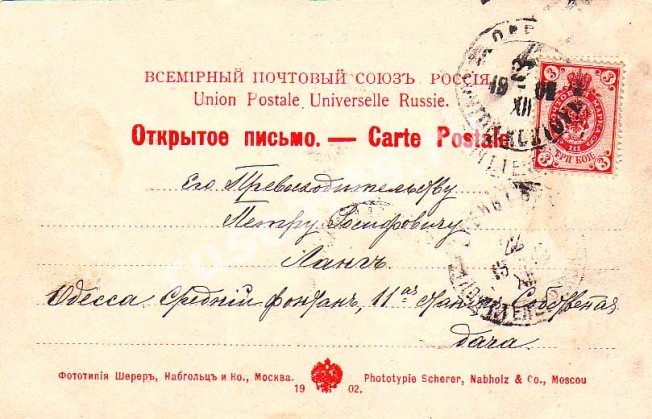 ВСЕМІРНЫЙ ПОЧТОВЫЙ СОЮЗЪ РОССІЯ
Union Postale Universelle Russie.
Открытое письмо. — Carte Postale
3 3
ТРИ КОП.
3 3
19 XII
Его Превосходительству
Петру Іосифовичу
Лангъ.
Одесса. Средній фонтанъ, 11ая станція Собственная
дача.
Фототипія Шереръ, Набгольцъ и Ко., Москва. Phototypie Scherer, Nabholz & Co., Moscou
19 02.